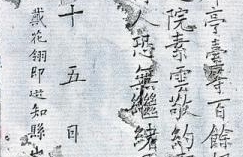 亭臺等百餘
院素雲敬約
恐無繼緒
十五日
戴花翎即選知縣